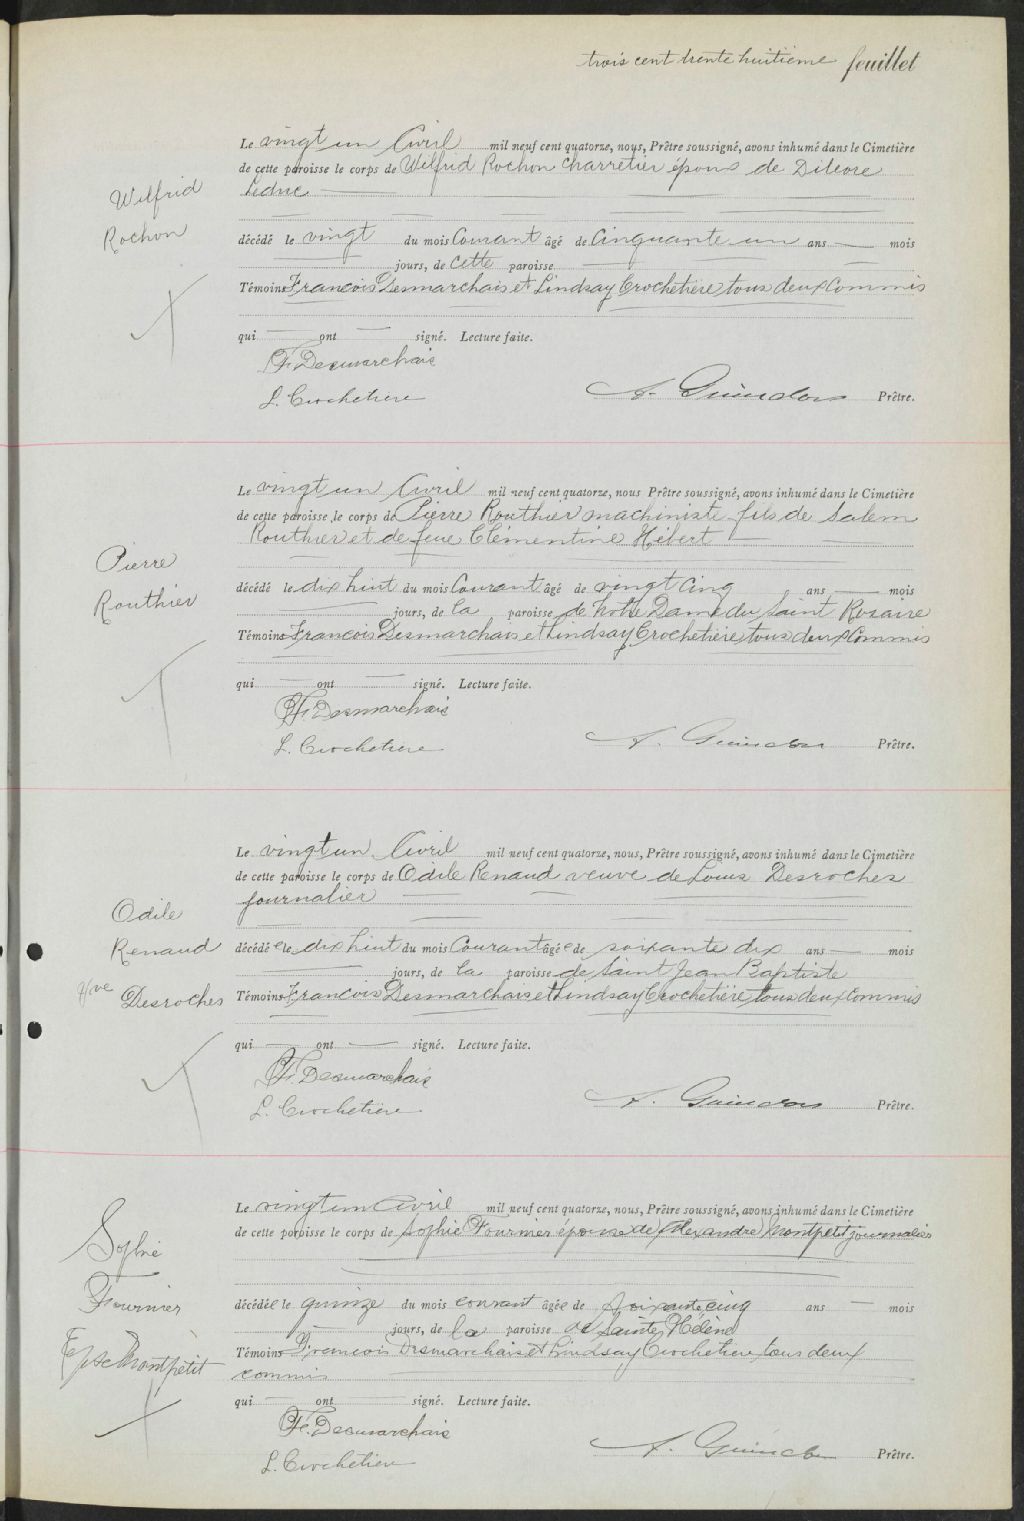 trois cent trente huitième feuillet
Le vingt un Avril mil neuf cent quatorze, nous, Prêtre soussigné, avons inhumé dans le Cimetière
de cette paroisse le corps de Wilfrid Rochon charretier époux de Déleore
Leduc
Wilfrid
Rochon
décédé le vingt du mois Courant âgé de Cinquante un ans — mois
jours, de cette paroisse
Témoins Francois Desmarchais et Lindsay Crochetière tous deux Commis
qui — ont — signé. Lecture faite.
F. Desmarchais
L. Crochetiere A. Guindon Prêtre.
Le vingt un Avril mil neuf cent quatorze, nous Prêtre soussigné, avons inhumé dans le Cimetière
de cette paroisse le corps de Pierre Routhier machiniste fils de Salem
Routhier et de feue Clémentine Hébert
Pierre
Routhier
décédé le dix huit du mois Courant âgé de vingt cinq ans — mois
jours, de la paroisse de Notre Dame du Saint Rosaire
Témoins Francois Desmarchais et Lindsay Crochetière tous deux Commis
qui — ont — signé. Lecture faite.
F. Desmarchais
L. Crochetiere A. Guindon Prêtre.
Le vingt un Avril mil neuf cent quatorze, nous, Prêtre soussigné, avons inhumé dans le Cimetière
de cette paroisse le corps de Odile Renaud veuve de Louis Desroches
journalier
Odile
Renaud
Vve Desroches
décédée le dix huit du mois Courant âgée de soixante dix ans — mois
jours, de la paroisse de Saint Jean Baptiste
Témoins Francois Desmarchais et Lindsay Crochetière tous deux Commis
qui — ont — signé. Lecture faite.
F. Desmarchais
L. Crochetiere A. Guindon Prêtre.
Le vingt un Avril mil neuf cent quatorze, nous, Prêtre soussigné, avons inhumé dans le Cimetière
de cette paroisse le corps de Sophie Fournier épouse de Alexandre Montpetit journalier
Sophie
Fournier
Epse Montpetit
décédée le quinze du mois courant âgée de soixante cinq ans — mois
jours, de la paroisse de Sainte Hélène
Témoins Francois Desmarchais et Lindsay Crochetiere tous deux
commis
qui — ont — signé. Lecture faite.
F. Desmarchais
L. Crochetiere A. Guindon Prêtre.